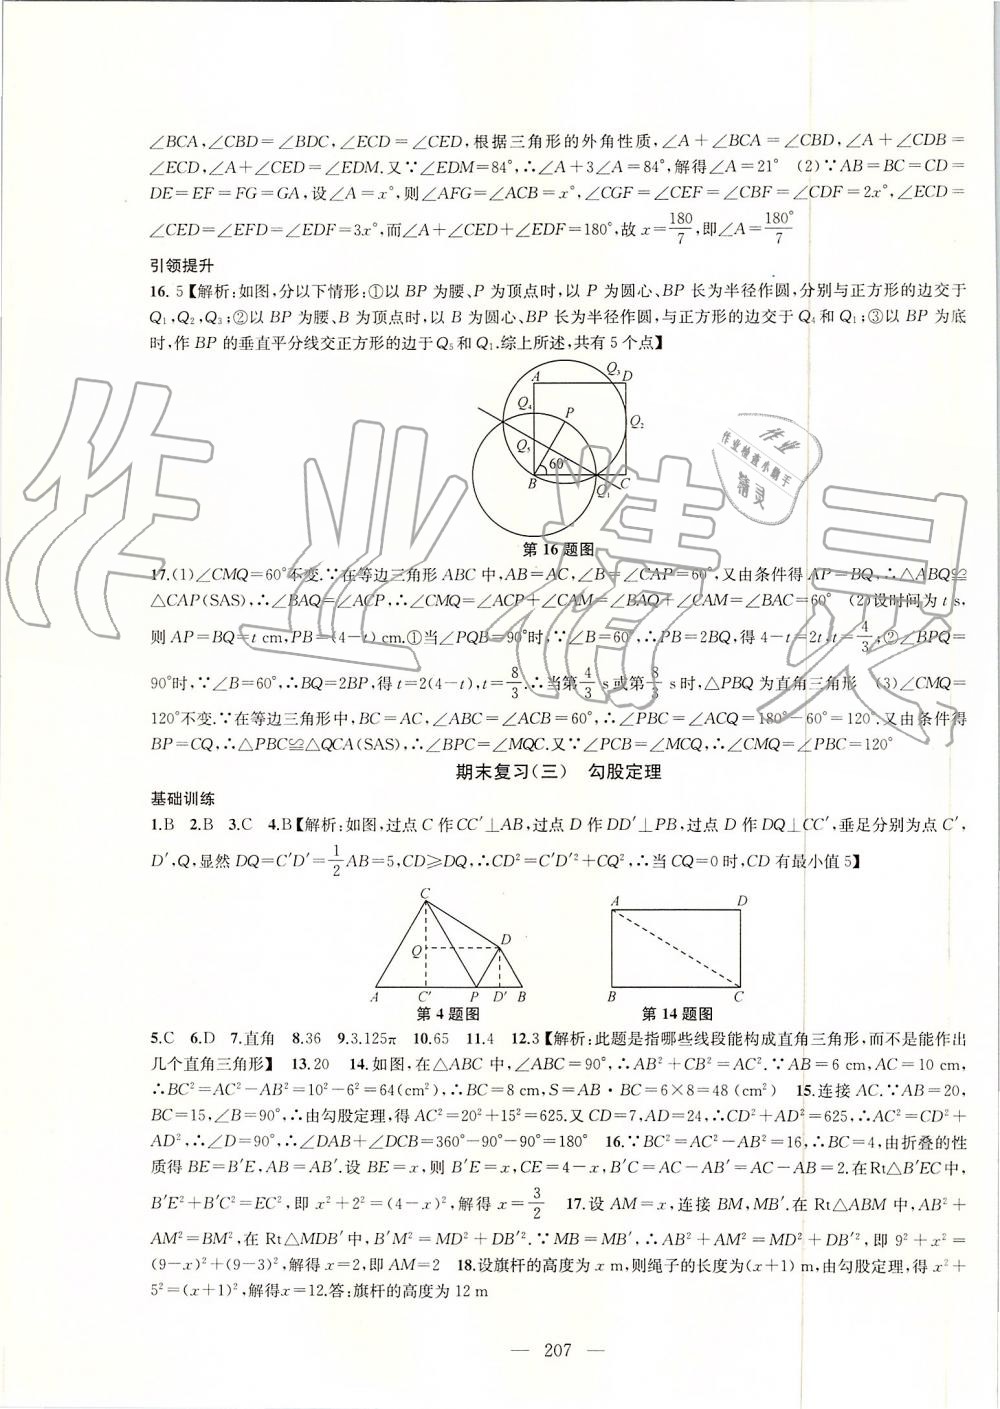 ∠BCA,∠CBD=∠BDC,∠ECD=∠CED,根据三角形的外角性质,∠A+∠BCA=∠CBD,∠A+∠CDB=
∠ECD,∠A+∠CED=∠EDM.又∵∠EDM=84°,∴∠A+3∠A=84°,解得∠A=21° (2)∵AB=BC=CD=
DE=EF=FG=GA,设∠A=x°,则∠AFG=∠ACB=x°,∠CGF=∠CEF=∠CBF=∠CDF=2x°,∠ECD=
∠CED=∠EFD=∠EDF=3x°,而∠A+∠CED+∠EDF=180°,故x=180/7,即∠A=180°/7
引领提升
16. 5【解析:如图,分以下情形:①以BP为腰、P为顶点时,以P为圆心、BP长为半径作圆,分别与正方形的边交于
Q₁,Q₂,Q₃;②以BP为腰、B为顶点时,以B为圆心、BP长为半径作圆,与正方形的边交于Q₄和Q₁;③以BP为底
时,作BP的垂直平分线交正方形的边于Q₅和Q₁.综上所述,共有5个点】
Q₃
A D
Q₄ P
Q₂
Q₅
60°
B Q₁ C
第16题图
17.(1)∠CMQ=60°不变.∵在等边三角形ABC中,AB=AC,∠B=∠CAP=60°,又由条件得AP=BQ,∴△ABQ≌
△CAP(SAS),∴∠BAQ=∠ACP,∴∠CMQ=∠ACP+∠CAM=∠BAQ+∠CAM=∠BAC=60° (2)设时间为t s,
则AP=BQ=t cm,PB=(4-t) cm.①当∠PQB=90°时,∵∠B=60°,∴PB=2BQ,得4-t=2t,t=4/3;②∠BPQ=
90°时,∵∠B=60°,∴BQ=2BP,得t=2(4-t),t=8/3.∴当第4/3 s或第8/3 s时,△PBQ为直角三角形 (3)∠CMQ=
120°不变.∵在等边三角形中,BC=AC,∠ABC=∠ACB=60°,∴∠PBC=∠ACQ=180°-60°=120°.又由条件得
BP=CQ,∴△PBC≌△QCA(SAS),∴∠BPC=∠MQC.又∵∠PCB=∠MCQ,∴∠CMQ=∠PBC=120°
期末复习(三) 勾股定理
基础训练
1.B 2.B 3.C 4.B【解析:如图,过点C作CC′⊥AB,过点D作DD′⊥PB,过点D作DQ⊥CC′,垂足分别为点C′,
D′,Q,显然DQ=C′D′=1/2AB=5,CD≥DQ,∴CD²=C′D′²+CQ²,∴当CQ=0时,CD有最小值5】
C
Q D
A C′ P D′ B
第4题图
A D
B C
第14题图
5.C 6.D 7.直角 8.36 9.3.125π 10.65 11.4 12.3【解析:此题是指哪些线段能构成直角三角形,而不是能作出
几个直角三角形】 13.20 14.如图,在△ABC中,∠ABC=90°,∴AB²+CB²=AC².∵AB=6 cm,AC=10 cm,
∴BC²=AC²-AB²=10²-6²=64(cm²),∴BC=8 cm,S=AB·BC=6×8=48(cm²) 15.连接AC.∵AB=20,
BC=15,∠B=90°,∴由勾股定理,得AC²=20²+15²=625.又CD=7,AD=24,∴CD²+AD²=625,∴AC²=CD²+
AD²,∴∠D=90°,∴∠DAB+∠DCB=360°-90°-90°=180° 16.∵BC²=AC²-AB²=16,∴BC=4,由折叠的性
质得BE=B′E,AB=AB′.设BE=x,则B′E=x,CE=4-x,B′C=AC-AB′=AC-AB=2.在Rt△B′EC中,
B′E²+B′C²=EC²,即x²+2²=(4-x)²,解得x=3/2 17.设AM=x,连接BM,MB′.在Rt△ABM中,AB²+
AM²=BM²,在Rt△MDB′中,B′M²=MD²+DB′².∵MB=MB′,∴AB²+AM²=MD²+DB′²,即9²+x²=
(9-x)²+(9-3)²,解得x=2,即AM=2 18.设旗杆的高度为x m,则绳子的长度为(x+1) m,由勾股定理,得x²+
5²=(x+1)²,解得x=12.答:旗杆的高度为12 m
— 207 —
作业精灵
作业
作业检查小助手
精灵